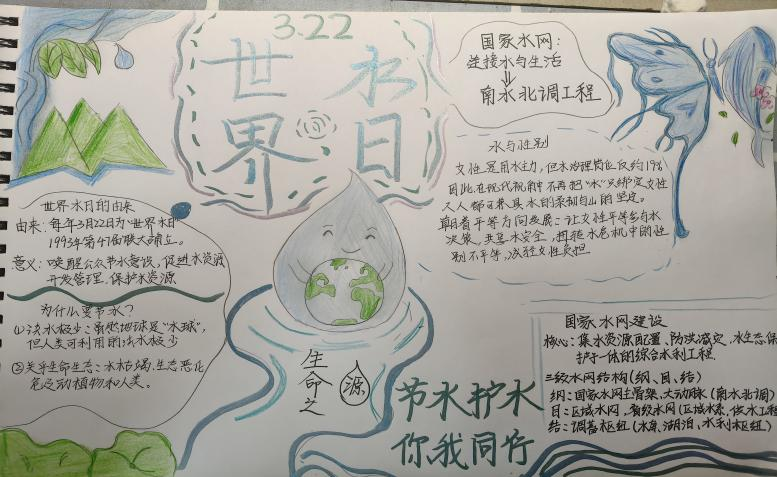 3.22
世界水日
国家水网:
连接水与生活
南水北调工程
水与性别
女性是用水主力,但水治理岗位仅约19%
因此在现代视角中不再把“水”只绑定女性
人人都可兼具水的柔韧与山的坚定。
朝着平等方向发展:让女性平等参与水
决策,共享水安全,扭转水危机中的性
别不平等,减轻女性负担
世界水日的由来
由来:每年3月22日为世界水日
1993年第47届联大确立。
意义:唤醒公众节水意识,促进水资源
开发管理、保护水资源
为什么要节水?
①淡水极少:虽然地球是“水球”,
但人类可利用的淡水极少
②关乎生命生态:水枯竭,生态恶化
危及动植物和人类。
生命之源
节水护水
你我同行
国家水网建设
核心:集水资源配置、防洪减灾、水生态保
护于一体的综合水利工程.
三级水网结构(纲、目、结)
纲:国家水网主骨架、大动脉(南水北调)
目:区域水网、省级水网(区域水系、供水工程)
结:调蓄枢纽(水库、湖泊、水利枢纽)